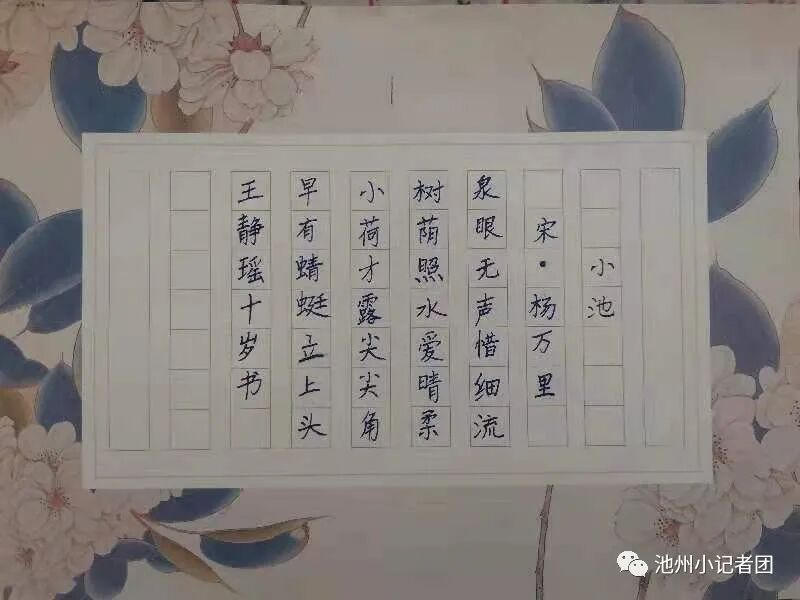 小池
宋·杨万里
泉眼无声惜细流
树荫照水爱晴柔
小荷才露尖尖角
早有蜻蜓立上头
王静瑶十岁书
池州小记者团